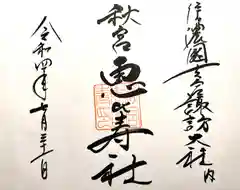 信濃國一之宮諏訪大社内
秋宮恵比寿社
令和四年七月三十一日